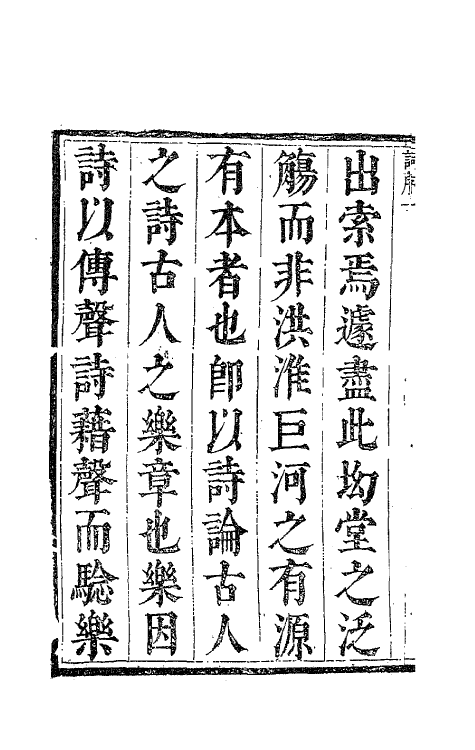 出索焉遽盡此坳堂之泛
觴而非洪淮巨河之有源
有本者也卽以詩論古人
之詩古人之樂章也樂因
詩以傳聲詩藉聲而騐樂